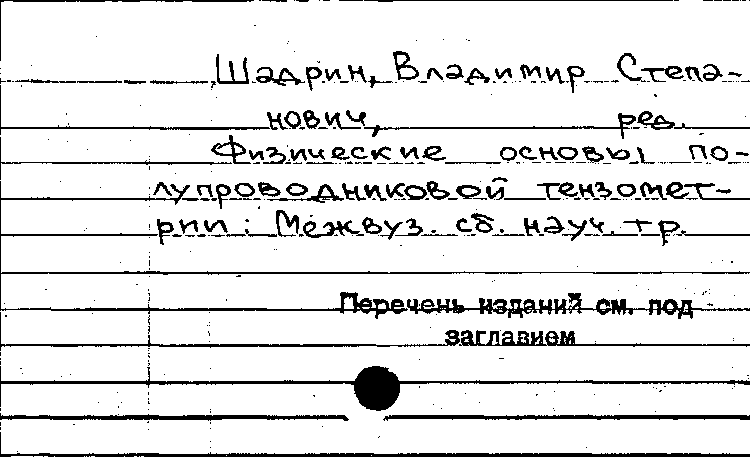 Шадрин, Владимир Степа-
нович, ред.
Физические основы по-
лупроводниковой тензомет-
рии: Межвуз. сб. науч. тр.
Перечень изданий см. под
заглавием